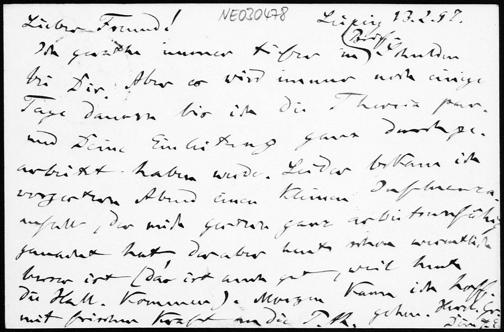 NE030478
Leipzig 13.2.98.
Lieber Freund!
Ich gerathe immer tiefer in (Brief) Schulden
bei Dir. Aber es wird immer noch einige
Tage dauern bis ich die Theorie
und Deine Einleitung ganz durchge-
arbeitet haben werde. Leider bekam ich
vorgestern Abend einen kleinen Influenza-
anfall, der mich gestern ganz arbeitsunfähig
gemacht hat, darüber heute schon wesentlich
besser ist (das ist auch gut, weil heute
die Hall. kommen). Morgen kann ich hoff.
mit frischer Kraft an die Th. gehen. Herzl. Gr.